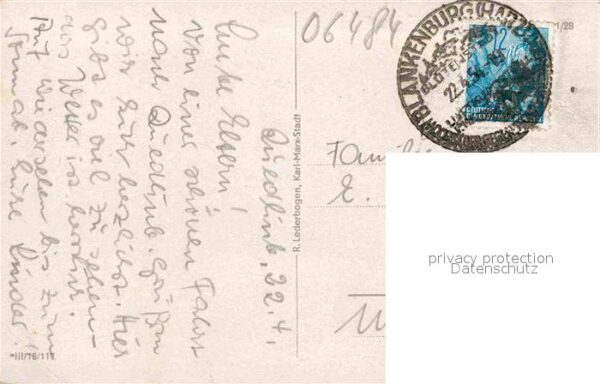 Quedlinb., 22.4.
Liebe Eltern!
Von einer schönen Fahrt
nach Quedlinb. grüßen
wir Euch herzlichst. Hier
gibt es viel zu sehen –
das Wetter ist herrlich.
Auf wiedersehen bis zum
Sonnab. Eure Kinder!
*III/18/117
R. Lederbogen, Karl-Marx-Stadt
06484
BLANKENBURG (HARZ)
22.4.54
1/28
Famili
E.
privacy protection
Datenschutz